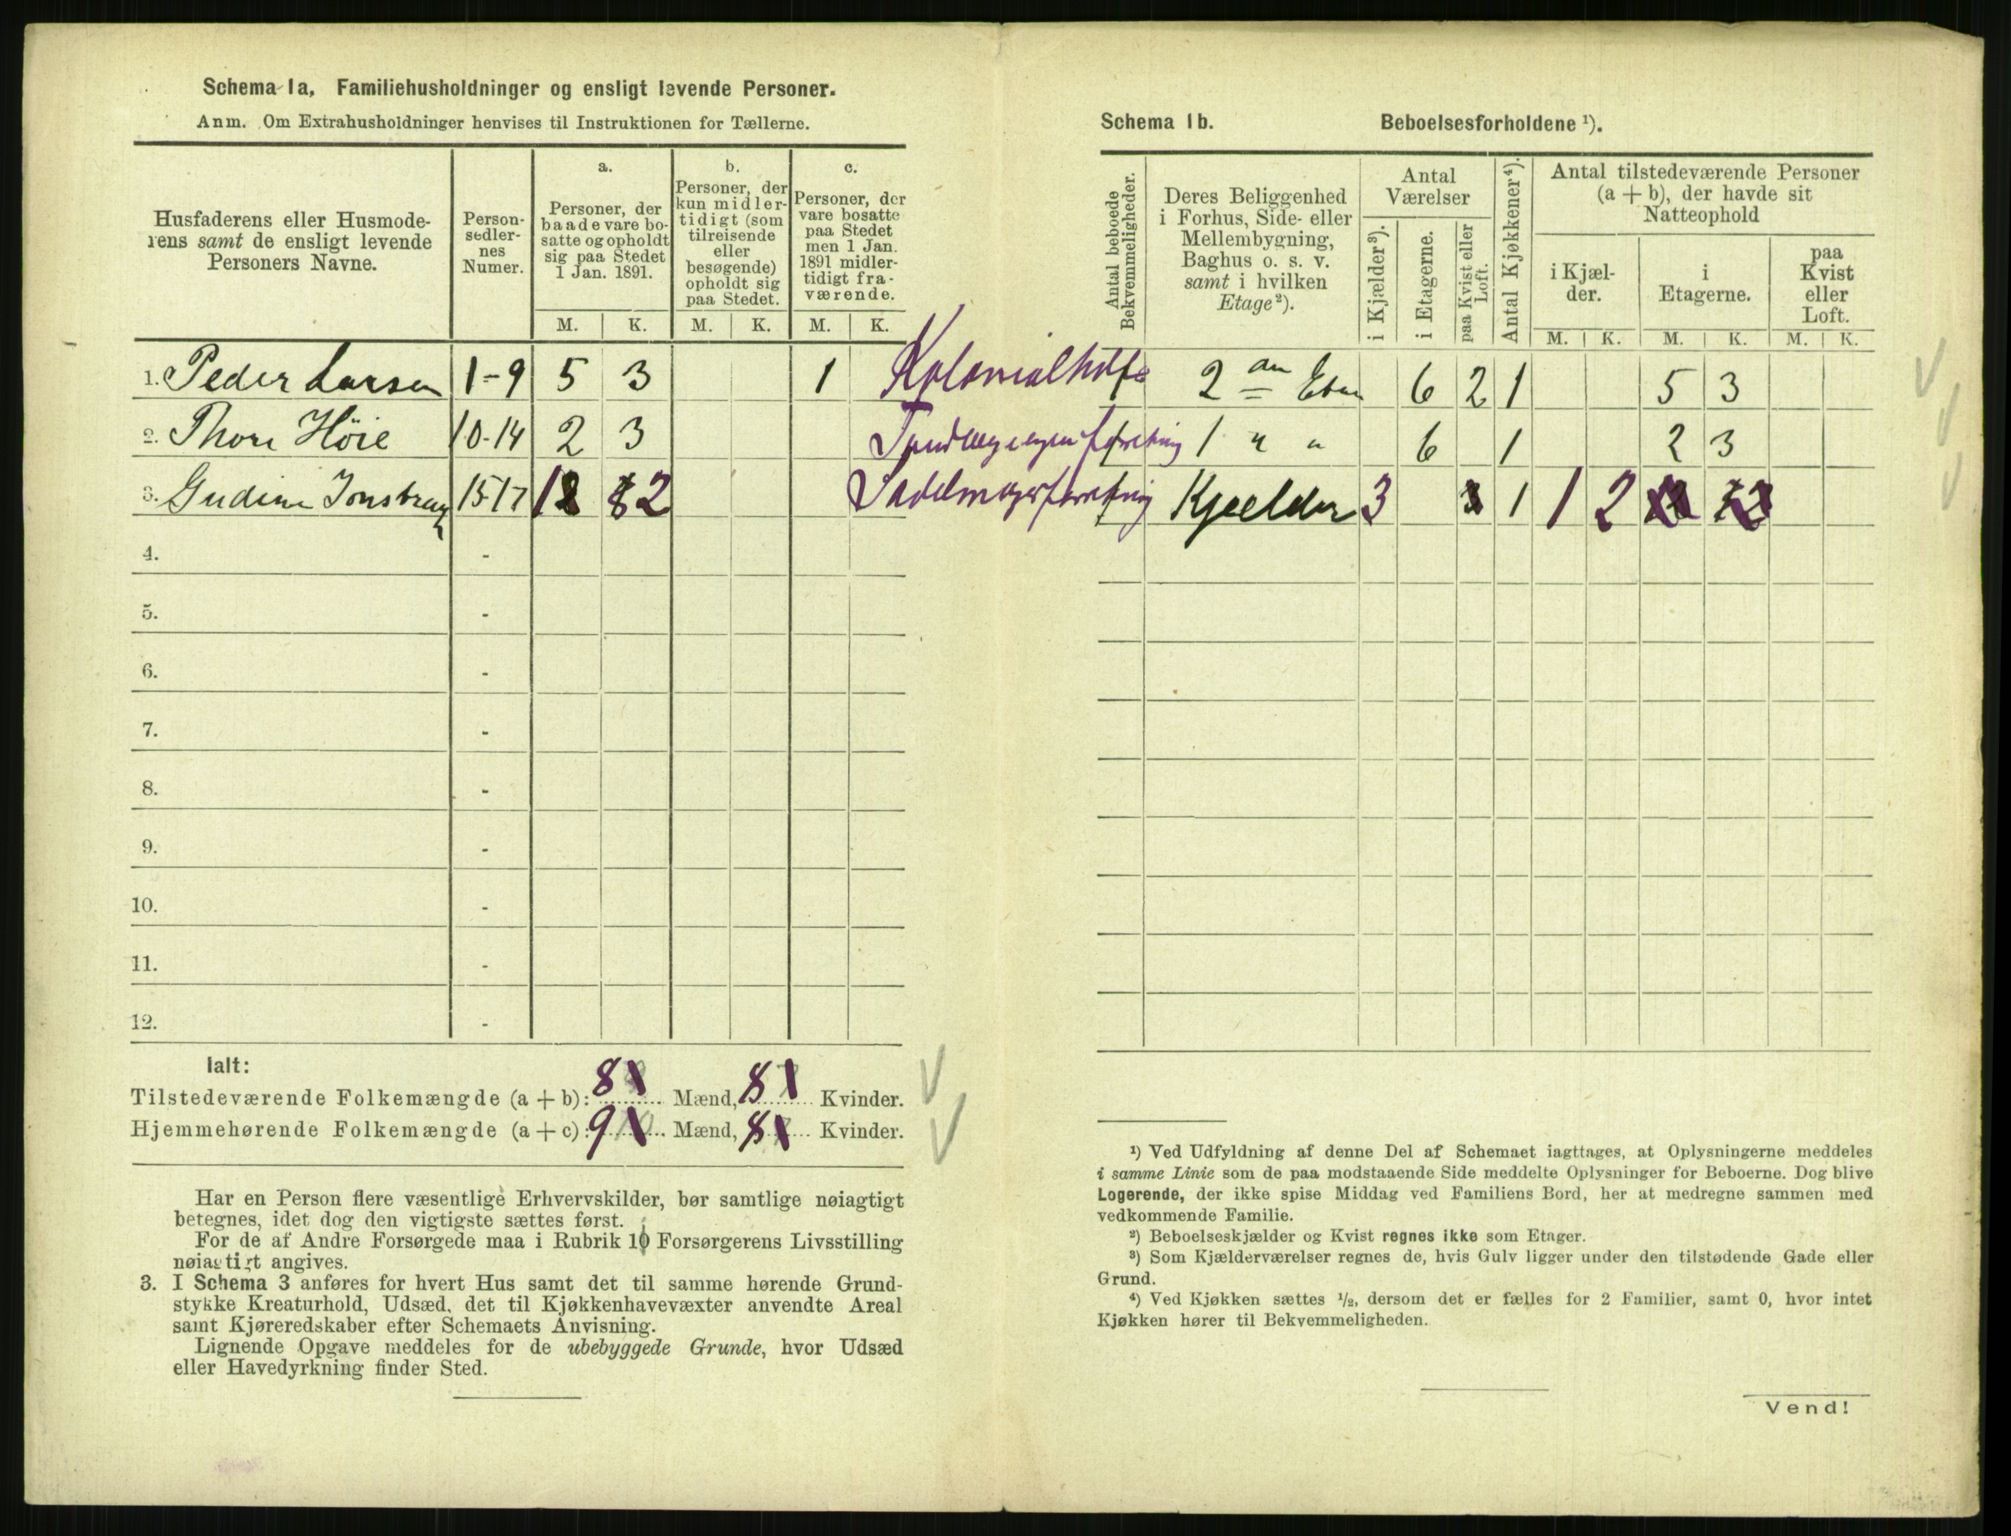 Schema 1a, Familiehusholdninger og ensligt levende Personer.
Anm. Om Extrahusholdninger henvises til Instruktionen for Tællerne.
Husfaderens eller Husmoderens samt de ensligt levende Personers Navne.
Personsedlernes Numer.
a.
Personer, der baade vare bosatte og opholdt sig paa Stedet 1 Jan. 1891.
b.
Personer, der kun midlertidigt (som tilreisende eller besøgende) opholdt sig paa Stedet.
c.
Personer, der vare bosatte paa Stedet men 1 Jan. 1891 midlertidigt fraværende.
M. K. M. K. M. K.
1. Peder Larsen 1-9 5 3 1
2. Thore Höie 10-14 2 3
3. Gudine 15-17 1 2
4. -
5. -
6. -
7. -
8. -
9. -
10. -
11. -
12. -
Ialt:
Tilstedeværende Folkemængde (a + b): 8 Mænd, 8 Kvinder.
Hjemmehørende Folkemængde (a + c): 9 Mænd, 8 Kvinder.
Har en Person flere væsentlige Erhvervskilder, bør samtlige nøiagtigt
betegnes, idet dog den vigtigste sættes først.
For de af Andre Forsørgede maa i Rubrik 10 Forsørgerens Livsstilling
nøiagtigt angives.
3. I Schema 3 anføres for hvert Hus samt det til samme hørende Grund-
stykke Kreaturhold, Udsæd, det til Kjøkkenhavevæxter anvendte Areal
samt Kjøreredskaber efter Schemaets Anvisning.
Lignende Opgave meddeles for de ubebyggede Grunde, hvor Udsæd
eller Havedyrkning finder Sted.
Schema 1b. Beboelsesforholdene ¹).
Antal beboede Bekvemmeligheder.
Deres Beliggenhed i Forhus, Side- eller Mellembygning, Baghus o. s. v. samt i hvilken Etage²).
Antal Værelser
i Kjælder³).
i Etagerne.
paa Kvist eller Loft.
Antal Kjøkkener⁴).
Antal tilstedeværende Personer (a + b), der havde sit Natteophold
i Kjælder.
i Etagerne.
paa Kvist eller Loft.
M. K. M. K. M. K.
2 6 2 1 5 3
1 " " 6 1 2 3
Kjælder 3 1 1 2
¹) Ved Udfyldning af denne Del af Schemaet iagttages, at Oplysningerne meddeles
i samme Linie som de paa modstaaende Side meddelte Oplysninger for Beboerne. Dog blive
Logerende, der ikke spise Middag ved Familiens Bord, her at medregne sammen med
vedkommende Familie.
²) Beboelseskjælder og Kvist regnes ikke som Etager.
³) Som Kjælderværelser regnes de, hvis Gulv ligger under den tilstødende Gade eller
Grund.
⁴) Ved Kjøkken sættes ½, dersom det er fælles for 2 Familier, samt 0, hvor intet
Kjøkken hører til Bekvemmeligheden.
Vend!